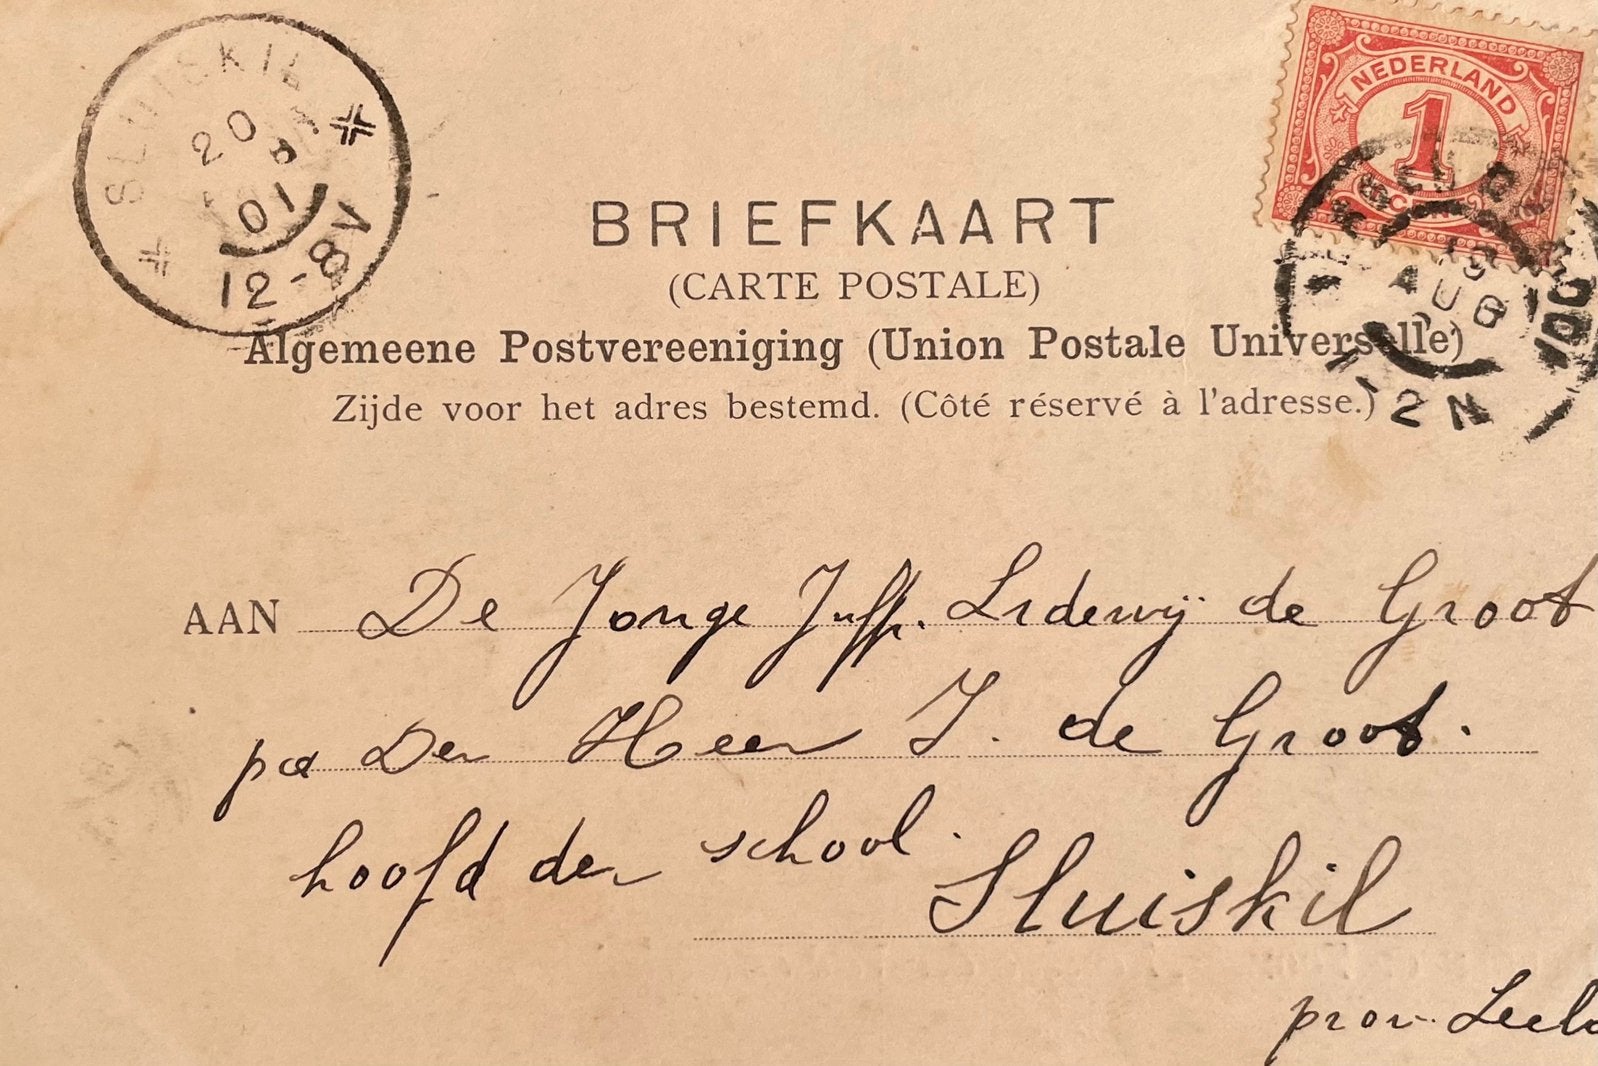 SLUISKIL
20
01
12-8V
NEDERLAND
1
CENT
19
AUG
12N
BRIEFKAART
(CARTE POSTALE)
Algemeene Postvereeniging (Union Postale Universelle)
Zijde voor het adres bestemd. (Côté réservé à l'adresse.)
AAN De Jonge Juffr. Lidewij de Groot
pa Den Heer J. de Groot.
hoofd der school.
Sluiskil
prov.